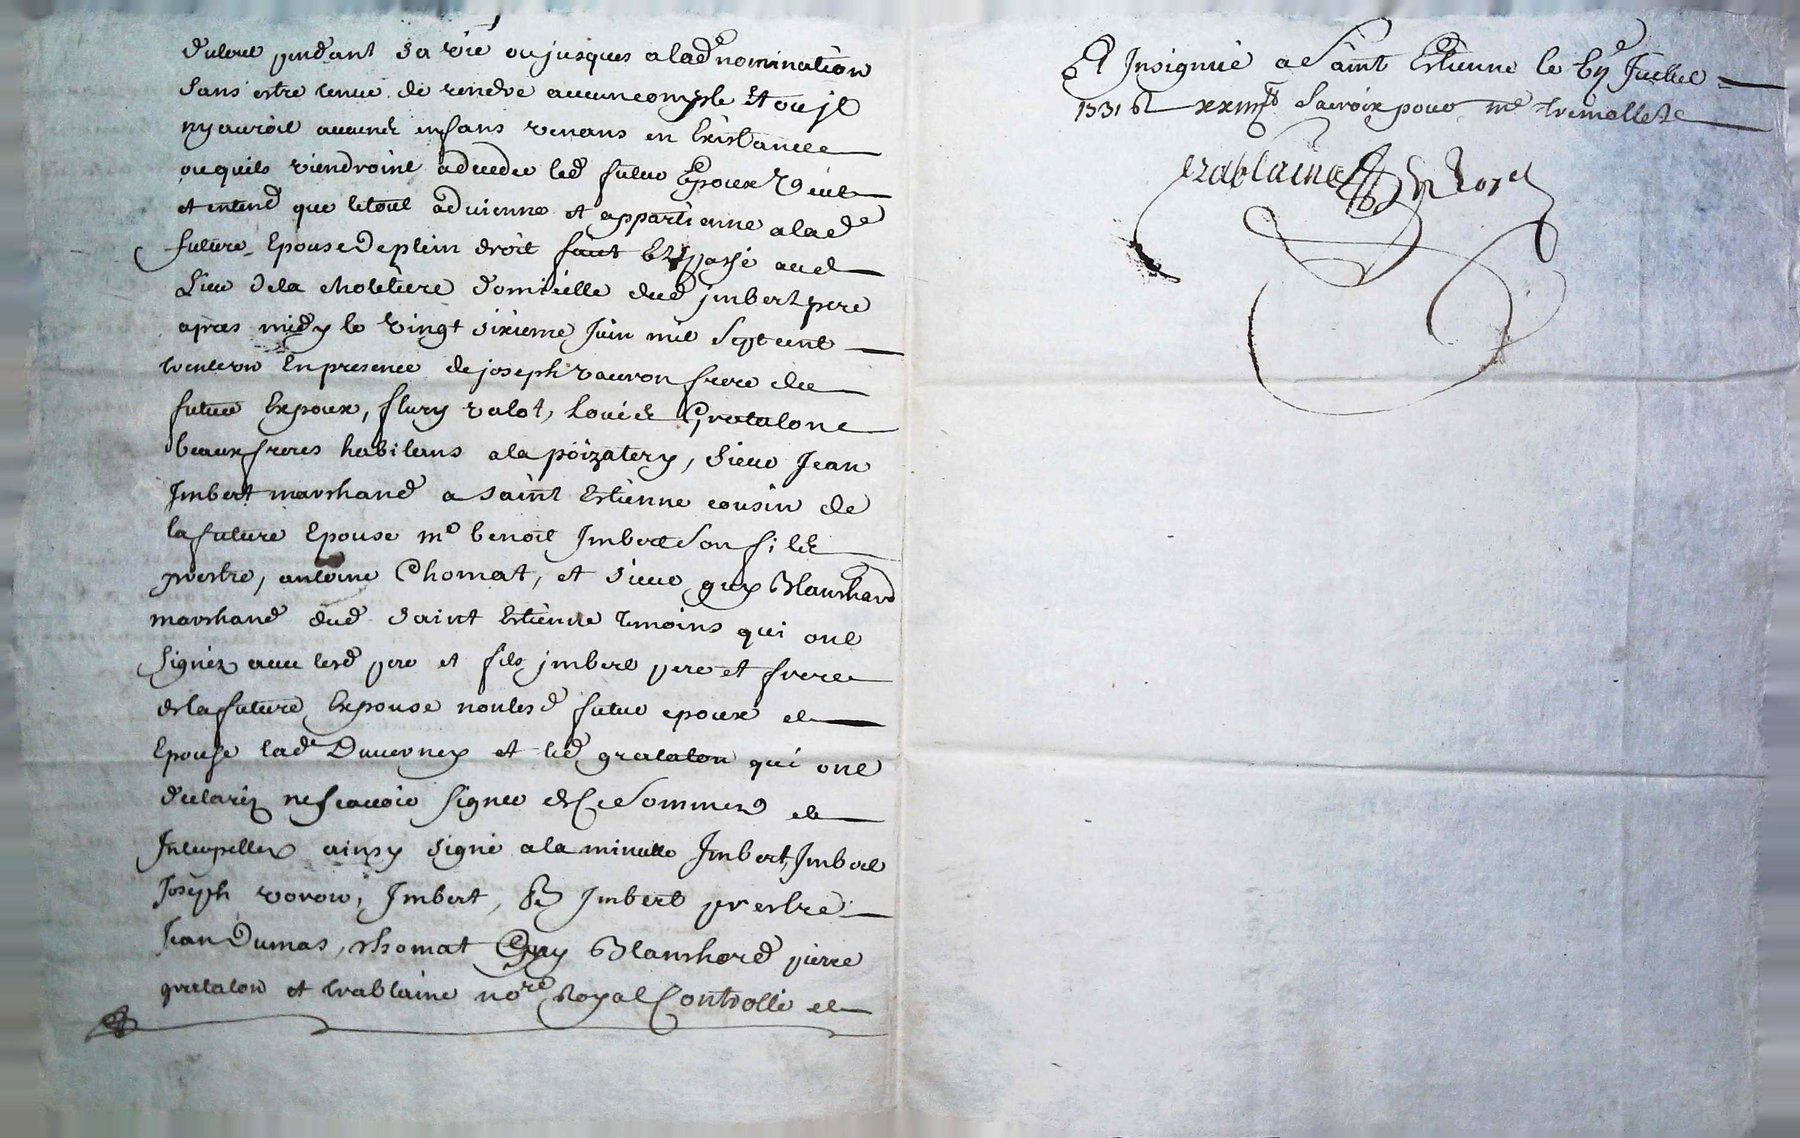 pendant sa vie ou jusques a lad nomination
sans estre tenue de rendre aucun compte Et ou jl
ny auroit aucuns enfans venans en Existance
ou quils viendroint a deceder led futur Epoux veut
et entend que letout advienne et appartienne a lad
future Epouse de plein droit fait Et passé aud
Lieu dela domicille dud jmbert pere
apres midy le vingt sixieme Juin mil Sept cent
trente un En presence de joseph vauron frere du
futeur Expoux, flury valot, Louis Gratalon
beauxfreres habitans a la poizatery, sieur Jean
Jmbert marchand a saint Estienne cousin de
la future Epouse me benoit Jmbert son fils
prestre, antoine Chomat, et sieur guy Blanchard
marchand dud saint Estienne temoins qui ont
signéz avec lesd pere et fils jmbert pere et frere
de la future Expouse non lesd futur epoux et
Epouse lad Duverney et led gratalon qui ont
declaréz ne scavoir signer de ce sommez et
Interpellez ainsy signé a la minutte Jmbert, Jmbert
Joseph voron, Jmbert, Jmbert prestre
Jean Dumas, chomat Guy Blanchard pierre
gratalon et trablaine nore Royal Controllé et
Et Insignué a Saint Estienne le Juillet
1731 Lacroix pour me tremollet
trablaine no Royal